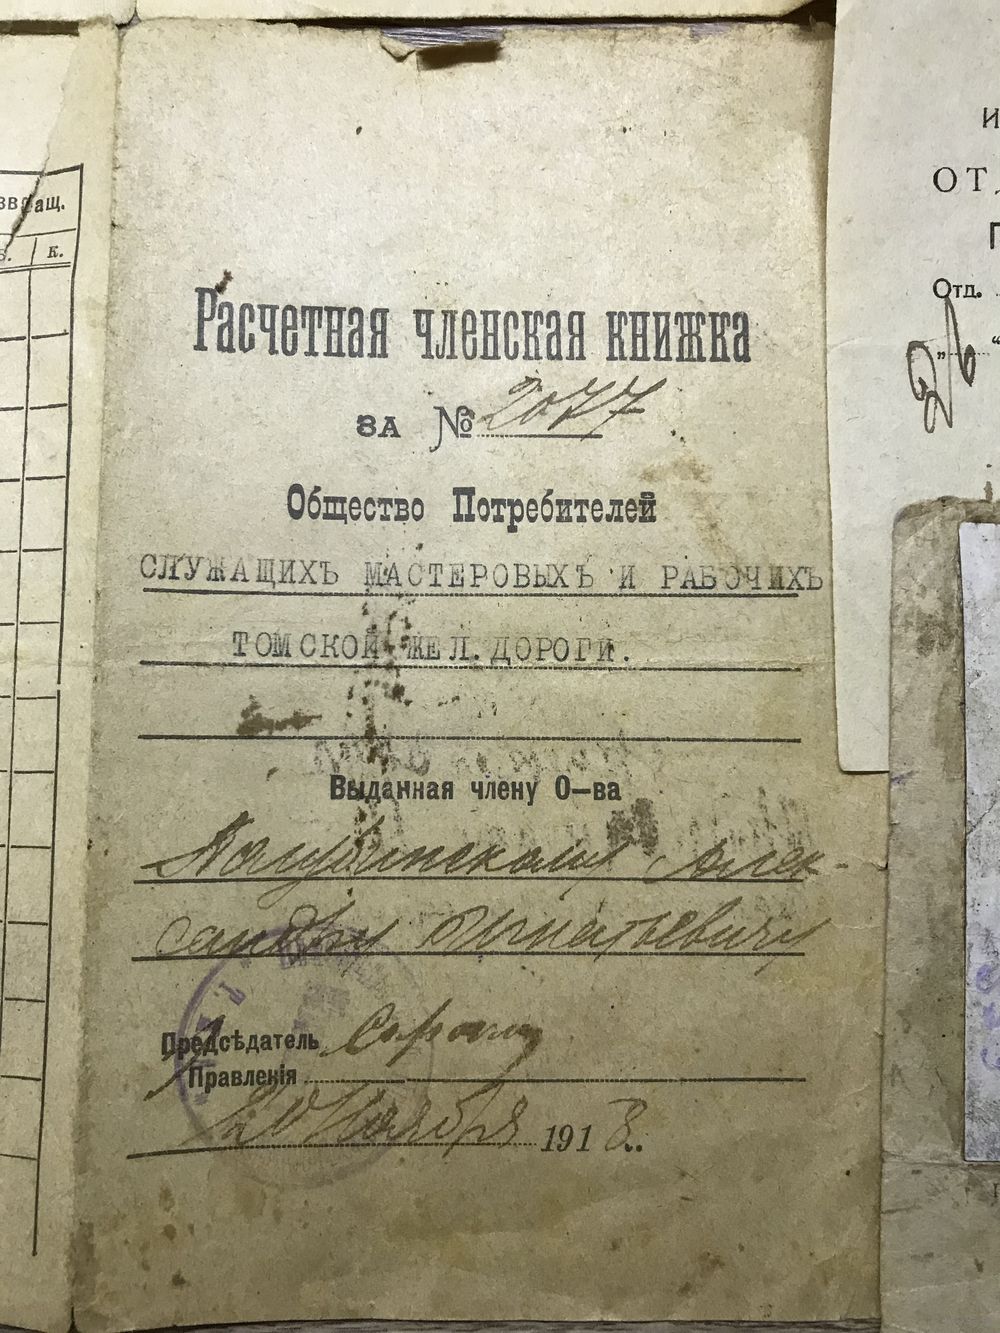 звращ.
к.
Расчетная членская книжка
за № 2077
Общество Потребителей
СЛУЖАЩИХЪ МАСТЕРОВЫХЪ И РАБОЧИХЪ
ТОМСКОЙ ЖЕЛ. ДОРОГИ.
Выданная члену О–ва
Алек-
сандру Игнатьевичу
Предсѣдатель
Правленія
20 Ноября 1918.
И
ОТ
П
Отд.
„ “
26